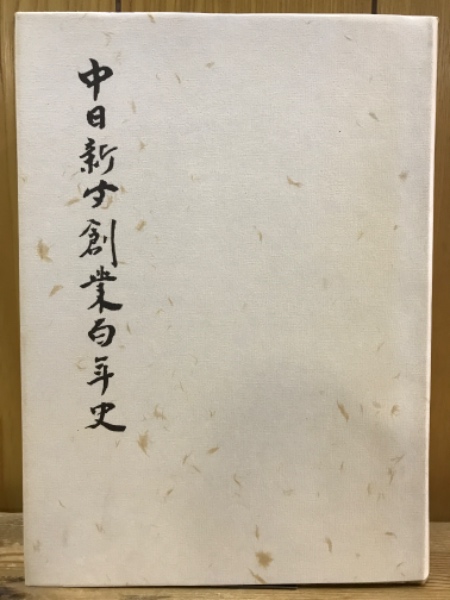 中日新聞創業百年史